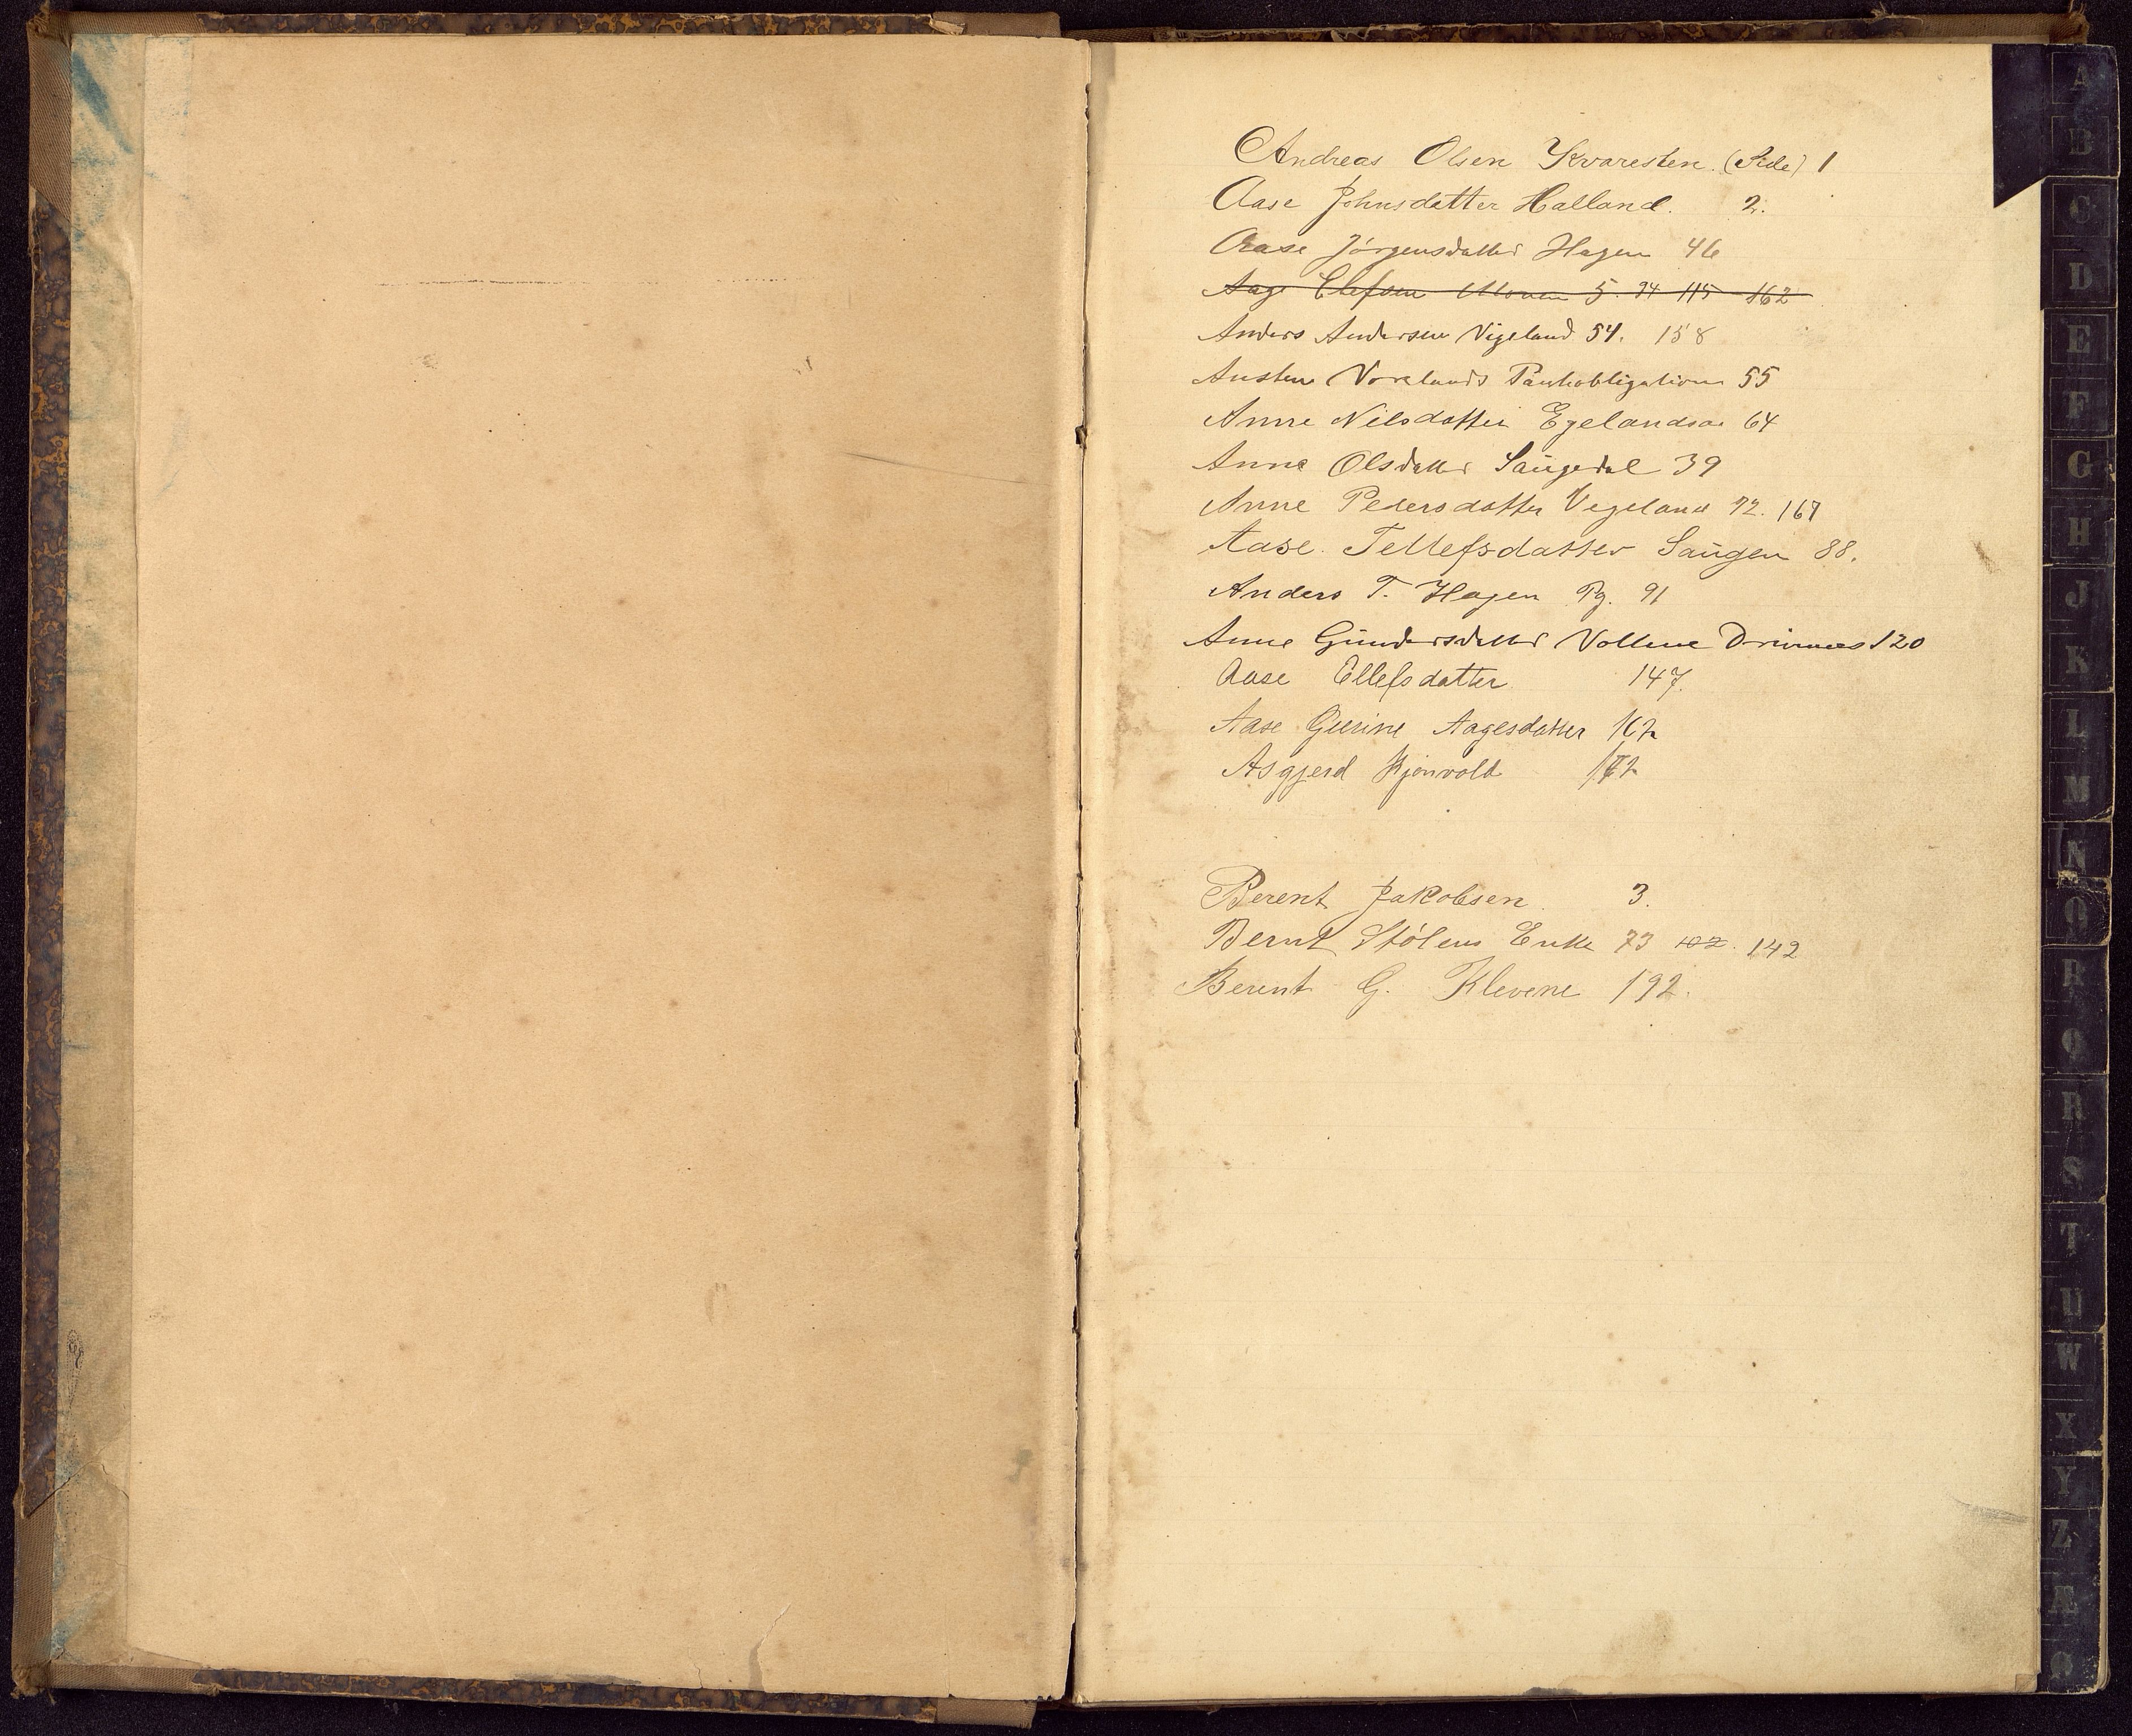 Andreas Olsen Kvaresten. (Side) 1
Aase Johnsdatter Halland. 2.
Aase Jörgensdatter Hagen 46
Aage Elefsen Monen 5. 94 115 162
Anders Andersen Vigeland 54. 158
Austen Vorelands Panteobligation 55
Anne Nilsdatter Egelandsaa 64
Anne Olsdatter Saŭgedal 39
Anne Pedersdatter Vegeland 72. 167
Aase. Tellefsdatter Saŭgen 88.
Anders T. Hagen Pg. 91
Anne Gŭndersdatter Vollene Drivnees 120
Aase Ellefsdatter 147.
Aase Gurine Aagesdatter 162
Asgjerd Kjønvold
Berent Jakobsen. 3.
Bernt Stölens Enke 73 102. 142
Berent G. Klevene 192.
A
B
C
D
E
F
G
H
J
K
L
M
N
O
P
Q
R
S
T
U
W
X
Y
Z
Æ
Ø